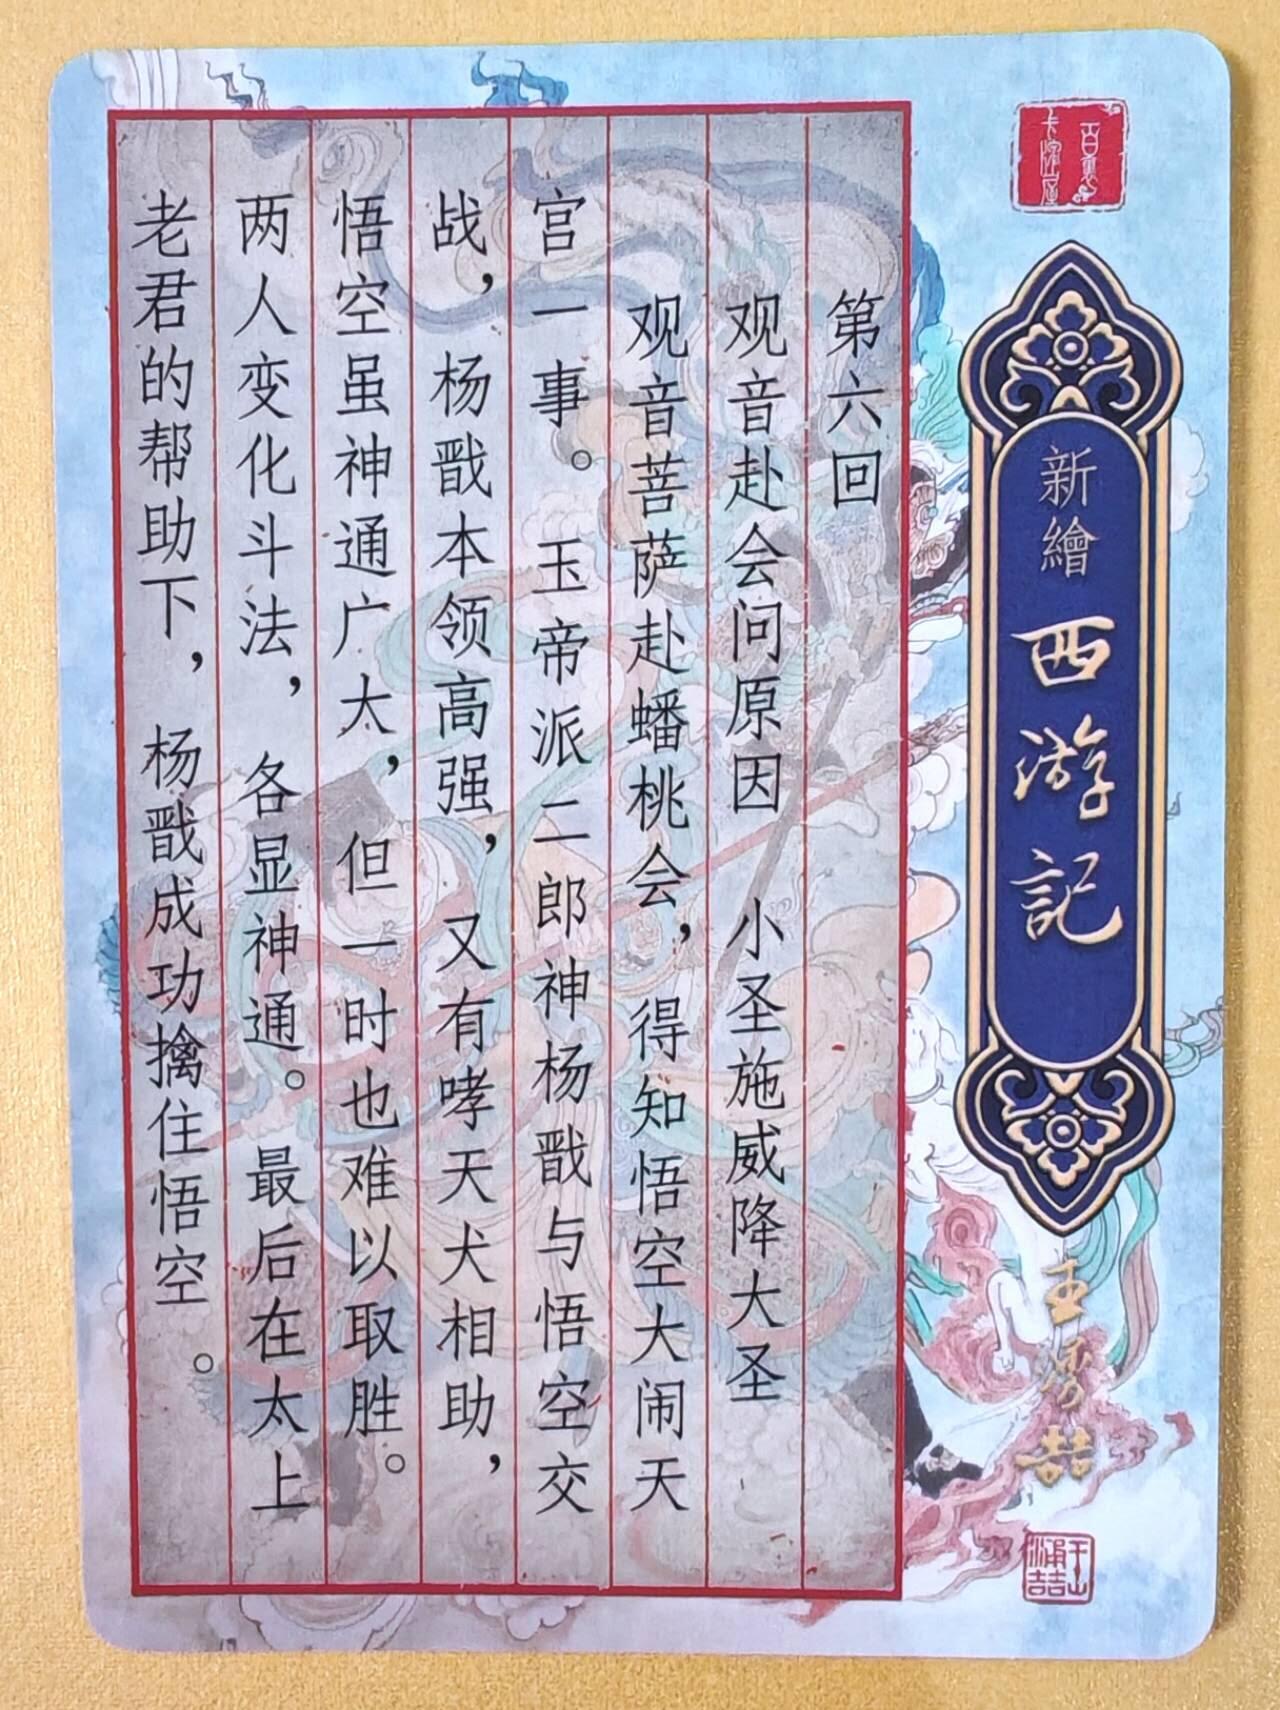 新繪西游記
第六回
观音赴会问原因 小圣施威降大圣
观音菩萨赴蟠桃会，得知悟空大闹天
宫一事。玉帝派二郎神杨戬与悟空交
战，杨戬本领高强，又有哮天犬相助，
悟空虽神通广大，但一时也难以取胜。
两人变化斗法，各显神通。最后在太上
老君的帮助下，杨戬成功擒住悟空。